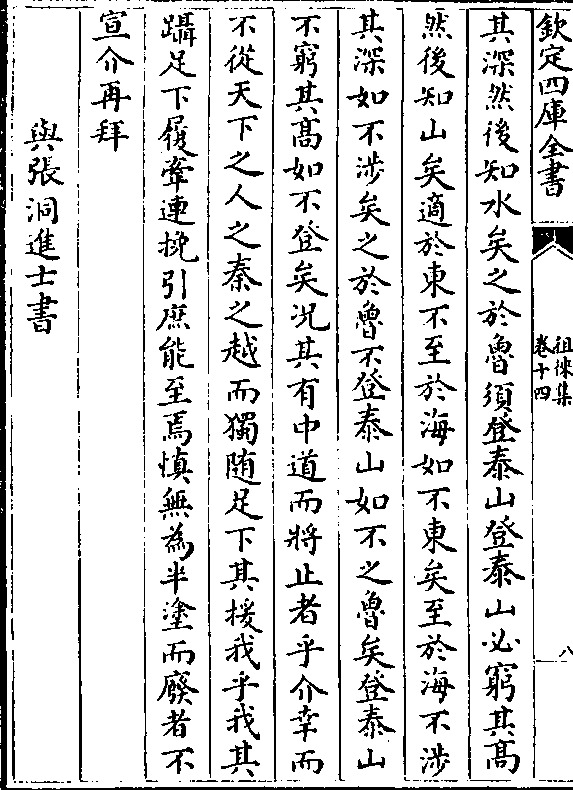 欽定四庫全書
徂徠集
卷十四
八
其深然後知水矣之於魯須登泰山登泰山必窮其髙
然後知山矣適於東不至於海如不東矣至於海不涉
其深如不涉矣之於魯不登泰山如不之魯矣登泰山
不窮其髙如不登矣况其有中道而將止者乎介幸而
不從天下之人之秦之越而獨随足下其援我乎我其
躡足下履牽連挽引庶能至焉慎無為半塗而廢者不
宣介再拜
與張洞進士書